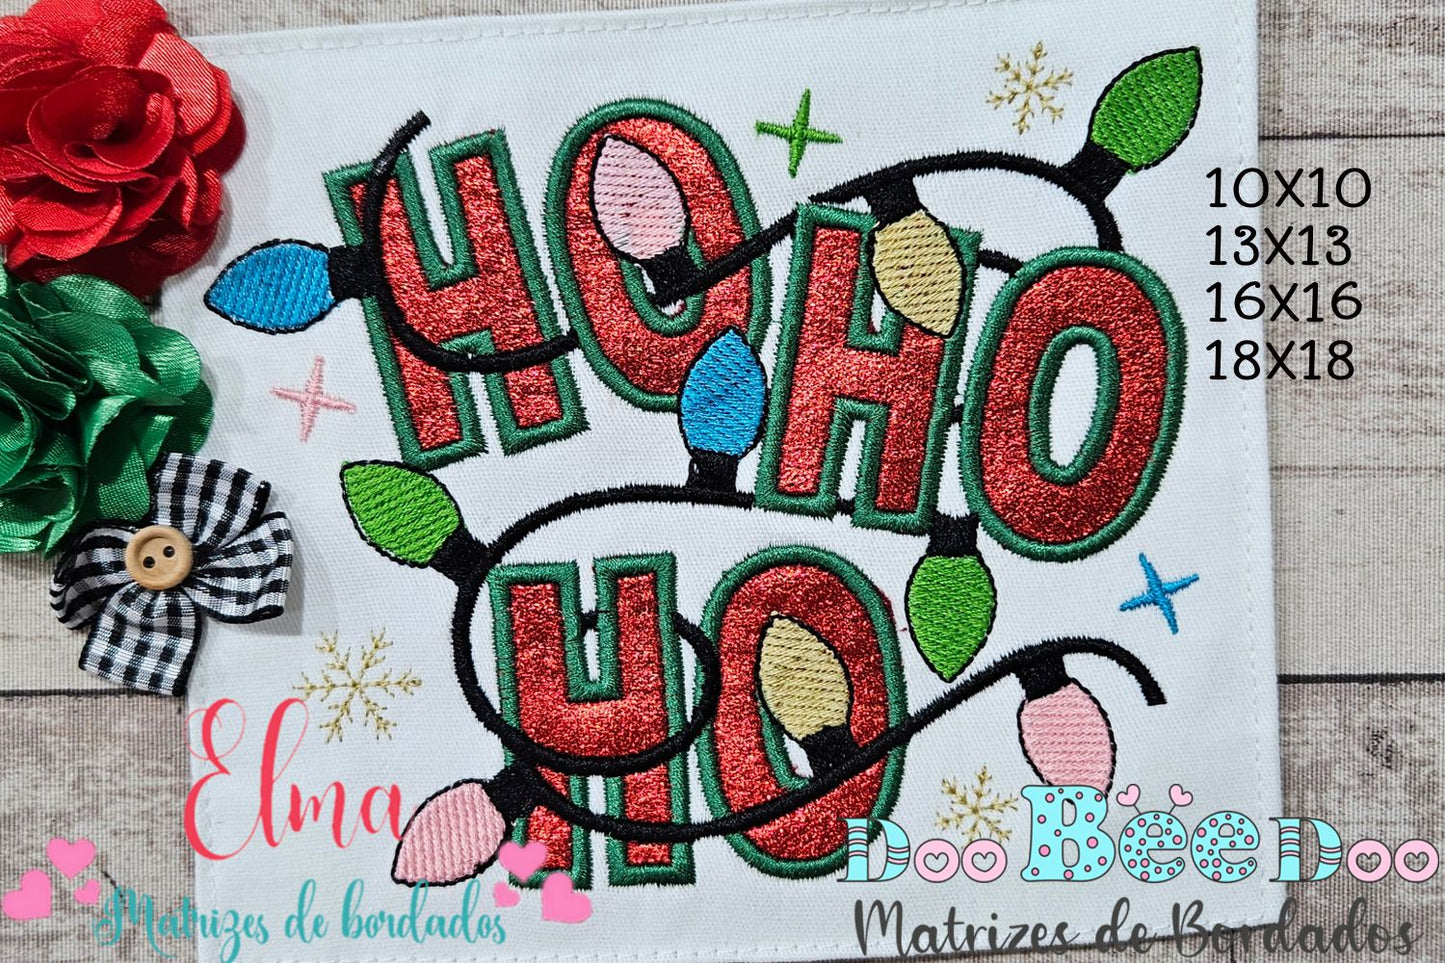 HO HO
HO
10X10
13X13
16X16
18X18
Elma
Matrizes de bordados
Doo Bee Doo
Matrizes de Bordados